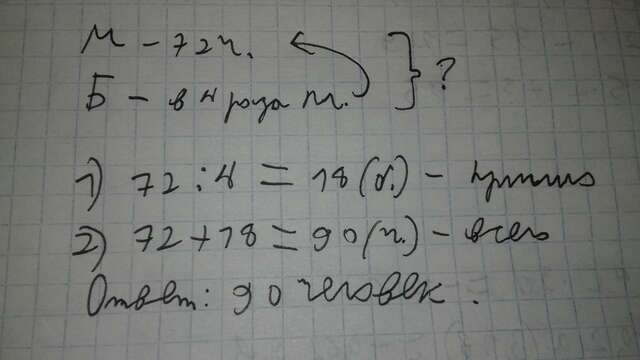 М - 72 ч. } ?
Б - в 4 раза м.
1) 72 : 4 = 18 (б.) -
2) 72 + 18 = 90 (ч.) - всего
Ответ: 90 человек.